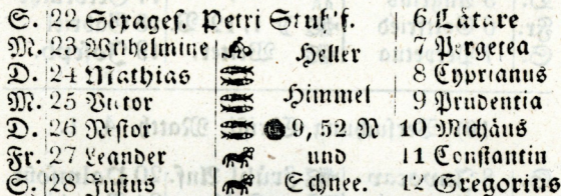 S. 22 Sexages. Petri Stuhlf. 6 Lätare
M. 23 Wilhelmine Heller 7 Pergetea
D. 24 Mathias 8 Cyprianus
M. 25 Victor Himmel 9 Prudentia
D. 26 Nestor 9, 52 N 10 Michäus
Fr. 27 Leander und 11 Constantin
S. 28 Justus Schnee. 12 Gregorius